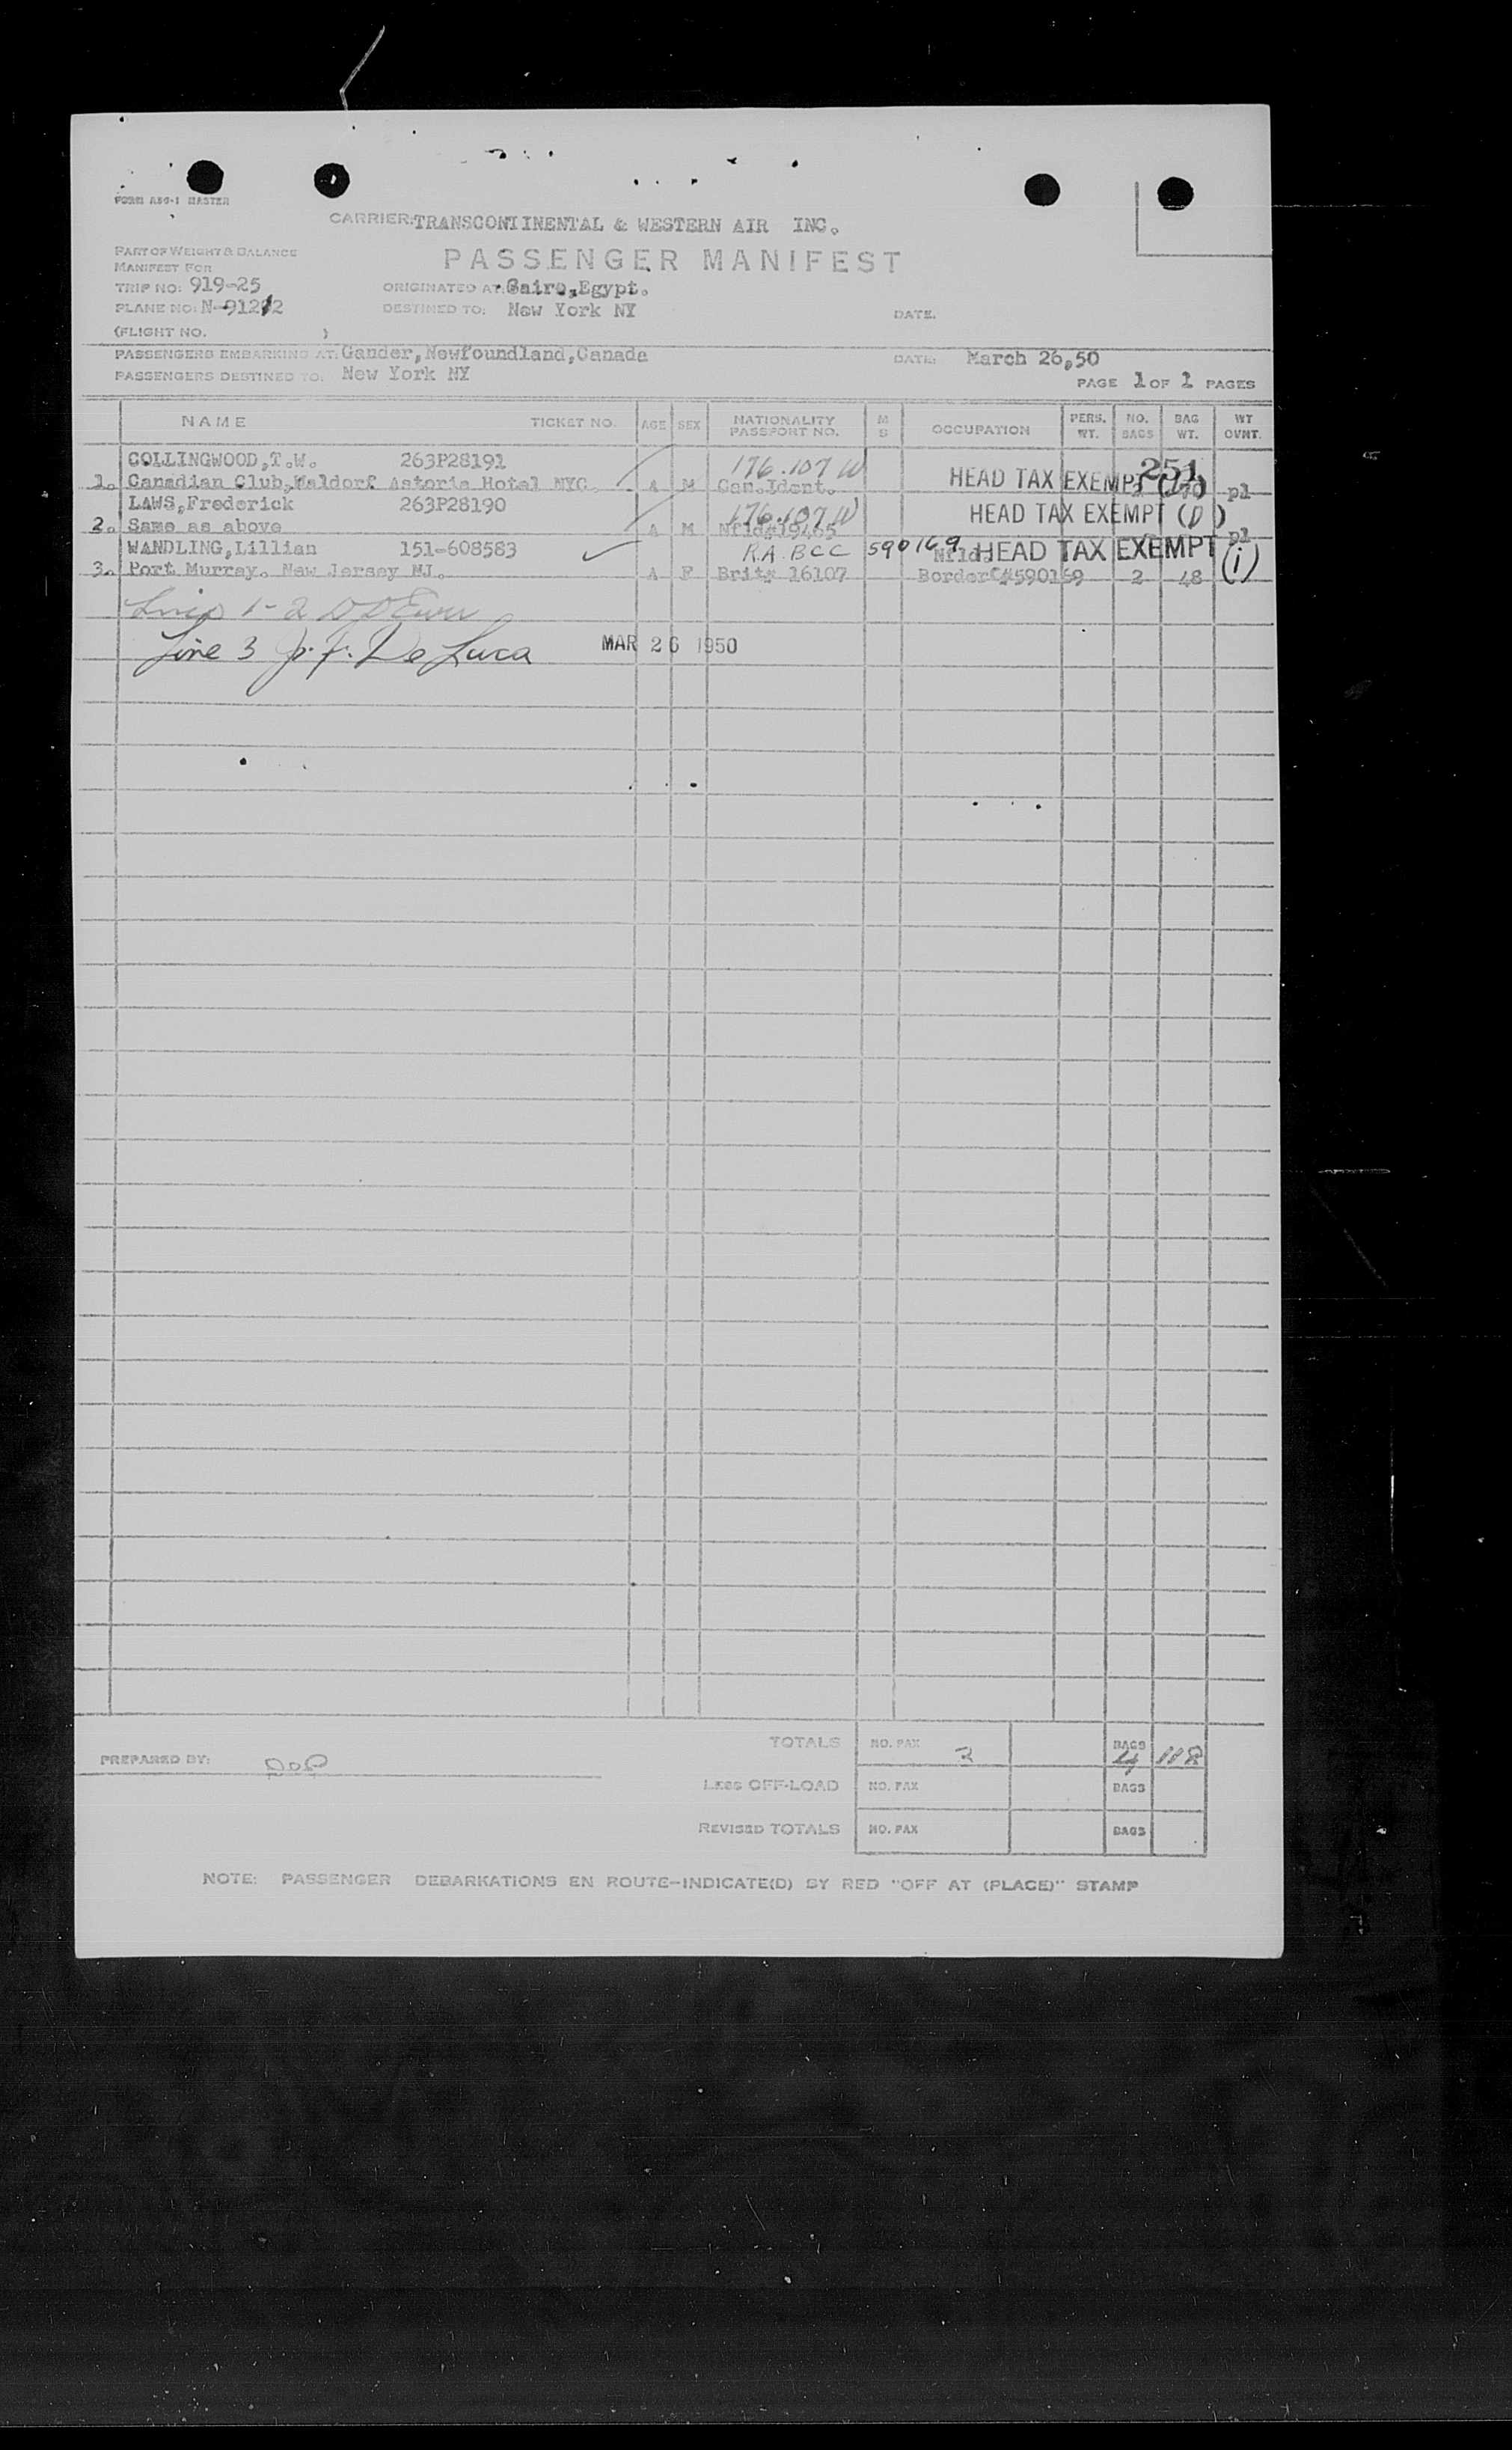 FORM A50-1 MASTER
CARRIER: TRANSCONTINENTAL & WESTERN AIR INC.
PART OF WEIGHT & BALANCE
MANIFEST FOR
PASSENGER MANIFEST
TRIP NO: 919-25
ORIGINATED AT: Cairo, Egypt.
PLANE NO: N-91212
DESTINED TO: New York NY
DATE:
(FLIGHT NO. )
PASSENGERS EMBARKING AT: Gander, Newfoundland, Canada
DATE: March 26, 50
PASSENGERS DESTINED TO: New York NY
PAGE 1 OF 1 PAGES
NAME TICKET NO. AGE SEX NATIONALITY PASSPORT NO. M S OCCUPATION PERS. WT. NO. BAGS BAG WT. WT OVNT.
COLLINGWOOD, T.W. 263P28191 176.107 W 251
1. Canadian Club, Waldorf Astoria Hotel NYC. A M Can. Ident. HEAD TAX EXEMPT pl
LAWS, Frederick 263P28190 176.107 W HEAD TAX EXEMPT (D)
2. Same as above A M Nfld#19465 pl
WANDLING, Lillian 151-608583 R.A. BCC 590169 Nfld. HEAD TAX EXEMPT (i)
3. Port Murray. New Jersey NJ. A F Brit# 16107 Border C#590169 2 48
Line 1-2
Line 3 J. F. De Luca MAR 26 1950
TOTALS NO. PAX 3 BAGS 4 118
PREPARED BY:
LESS OFF-LOAD NO. PAX BAGS
REVISED TOTALS NO. PAX BAGS
NOTE: PASSENGER DEBARKATIONS EN ROUTE-INDICATE(D) BY RED "OFF AT (PLACE)" STAMP